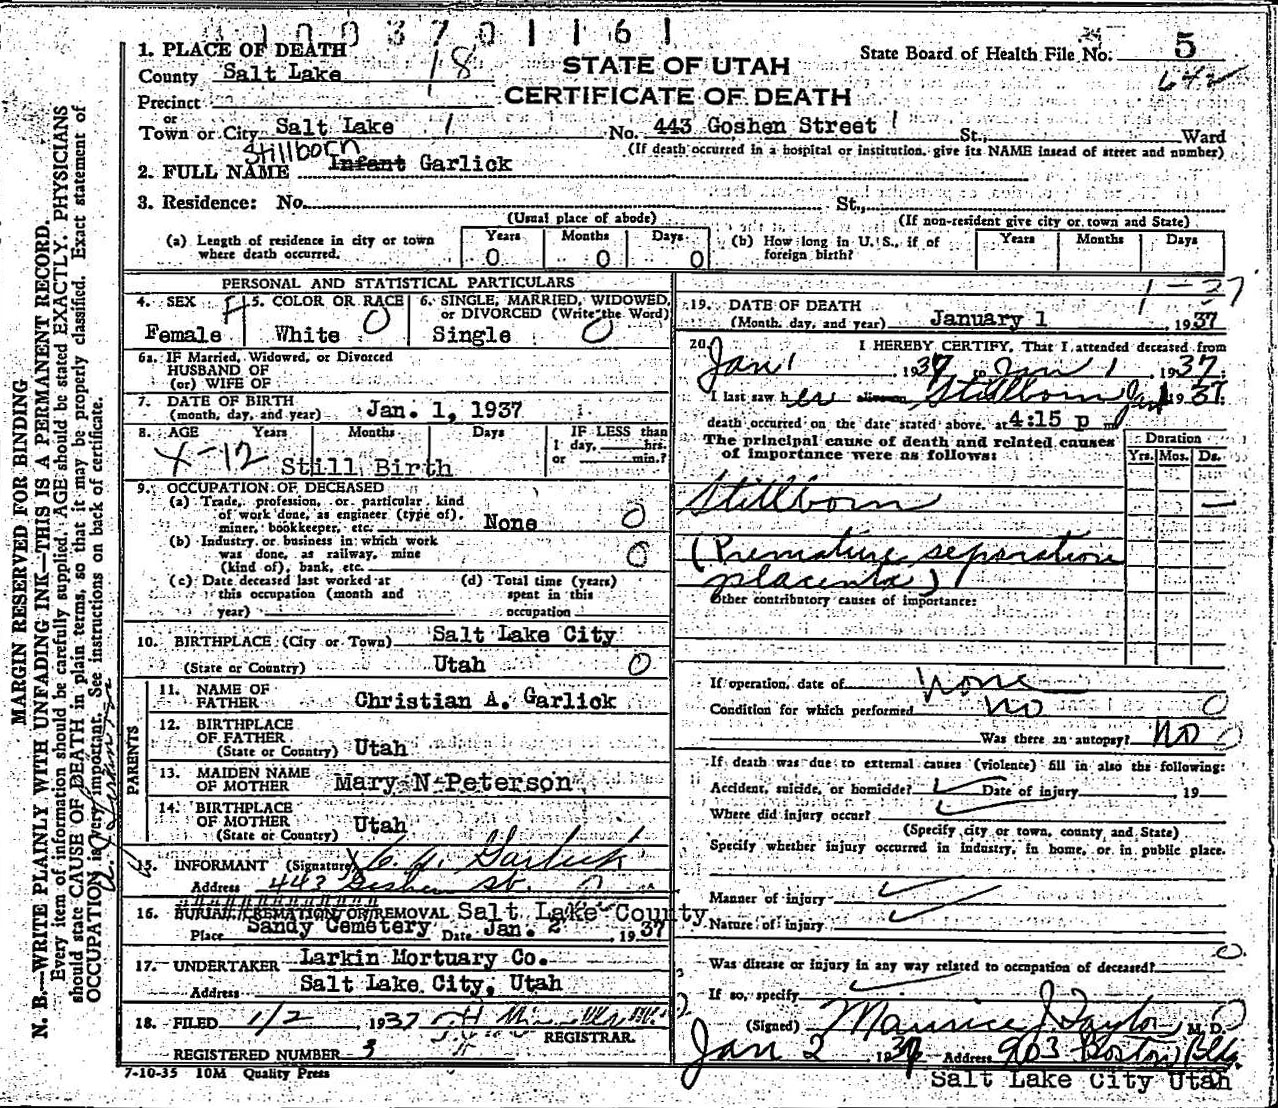 1 0 0 3 7 0 1 1 6 1
1. PLACE OF DEATH
County Salt Lake 18
STATE OF UTAH
CERTIFICATE OF DEATH
State Board of Health File No. 5
642
Precinct
or
Town or City Salt Lake 1 No. 443 Goshen Street 1 St., Ward
(If death occurred in a hospital or institution, give its NAME insead of street and number)
Stillborn
2. FULL NAME Infant Garlick
3. Residence: No. St.,
(Usual place of abode) (If non-resident give city or town and State)
(a) Length of residence in city or town where death occurred. Years 0 Months 0 Days 0
(b) How long in U. S., if of foreign birth? Years Months Days
PERSONAL AND STATISTICAL PARTICULARS
4. SEX Female
5. COLOR OR RACE White 0
6. SINGLE, MARRIED, WIDOWED, or DIVORCED (Write the Word) Single 0
6a. IF Married, Widowed, or Divorced
HUSBAND OF
(or) WIFE OF
7. DATE OF BIRTH
(month, day, and year) Jan. 1, 1937
8. AGE Years Months Days IF LESS than
1 day, hrs.
or min.?
X-12 Still Birth
9. OCCUPATION OF DECEASED
(a) Trade, profession, or particular kind
of work done, as engineer (type of),
miner, bookkeeper, etc. None 0
(b) Industry or business in which work
was done, as railway, mine
(kind of), bank, etc. 0
(c) Date deceased last worked at
this occupation (month and
year)
(d) Total time (years)
spent in this
occupation
10. BIRTHPLACE (City or Town) Salt Lake City
(State or Country) Utah 0
PARENTS
11. NAME OF
FATHER Christian A. Garlick
12. BIRTHPLACE
OF FATHER
(State or Country) Utah
13. MAIDEN NAME
OF MOTHER Mary N Peterson
14. BIRTHPLACE
OF MOTHER
(State or Country) Utah
15. INFORMANT (Signature) X C. A. Garlick
Address 443 Goshen St.
16. BURIAL, CREMATION OR REMOVAL Salt Lake County
Place Sandy Cemetery Date Jan. 2, 1937
17. UNDERTAKER Larkin Mortuary Co.
Address Salt Lake City, Utah
18. FILED 1/2 1937
REGISTRAR.
REGISTERED NUMBER 3
7-10-35 10M Quality Press
1-37
19. DATE OF DEATH
(Month, day, and year) January 1, 1937
20. I HEREBY CERTIFY, That I attended deceased from
Jan 1, 1937 to Jan 1, 1937;
I last saw her alive on Stillborn Jan 1 1937;
death occurred on the date stated above, at 4:15 p m
The principal cause of death and related causes
of importance were as follows:
Duration
Yrs. Mos. Ds.
Stillborn
(Premature separation
placenta)
Other contributory causes of importance:
If operation, date of none
Condition for which performed no 0
Was there an autopsy? no
If death was due to external causes (violence) fill in also the following:
Accident, suicide, or homicide? Date of injury 19
Where did injury occur?
(Specify city or town, county, and State)
Specify whether injury occurred in industry, in home, or in public place.
Manner of injury
Nature of injury
Was disease or injury in any way related to occupation of deceased?
If so, specify
(Signed) Maurice J Taylor M. D.
Jan 2 1937 Address 903 Boston Bldg.
Salt Lake City Utah
MARGIN RESERVED FOR BINDING
N. B.—WRITE PLAINLY WITH UNFADING INK—THIS IS A PERMANENT RECORD.
Every item of information should be carefully supplied. AGE should be stated EXACTLY. PHYSICIANS
should state CAUSE OF DEATH in plain terms, so that it may be properly classified. Exact statement of
OCCUPATION is very important. See instructions on back of certificate.